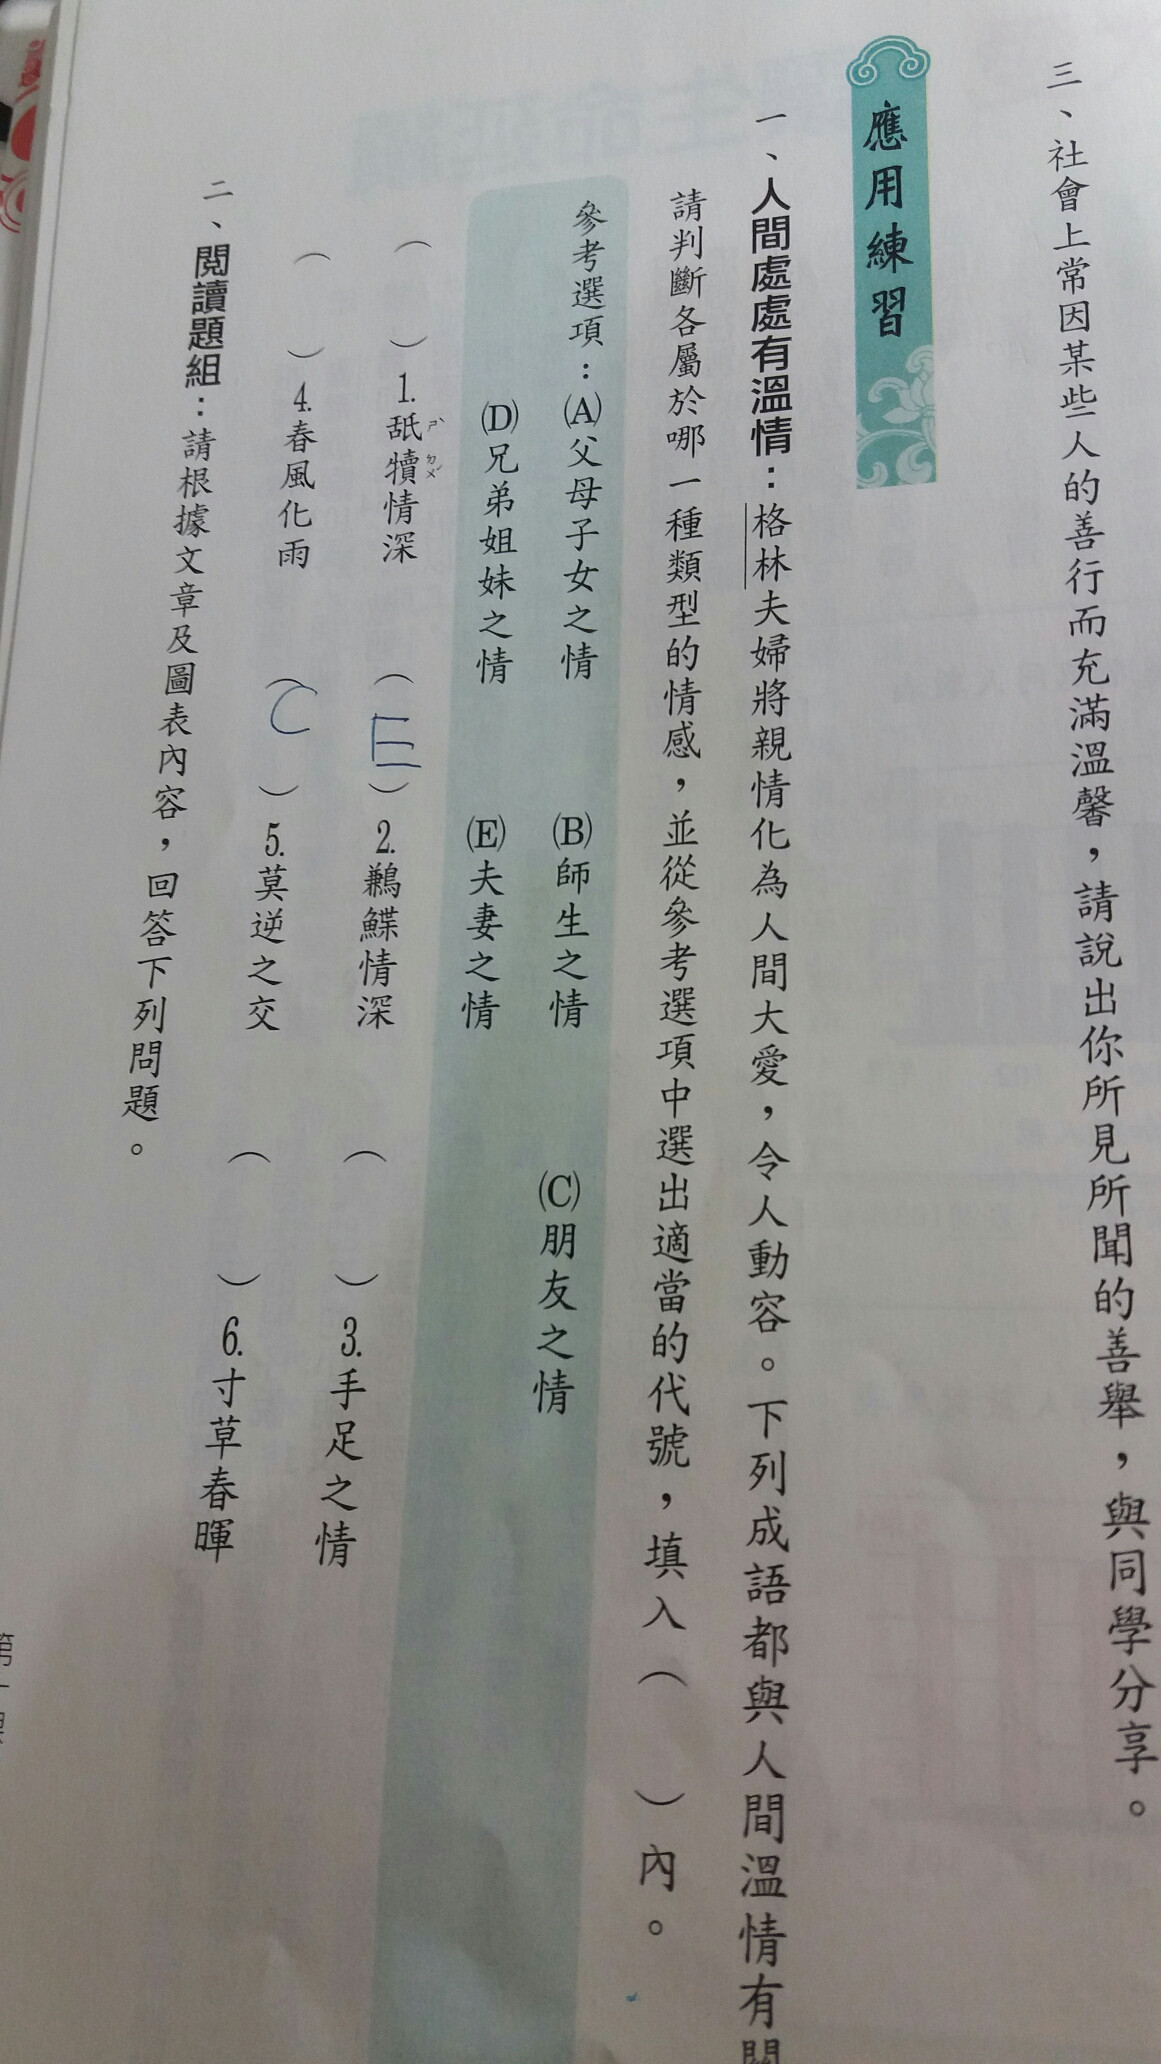 三、社會上常因某些人的善行而充滿溫馨，請說出你所見所聞的善舉，與同學分享。
應用練習
一、人間處處有溫情：格林夫婦將親情化為人間大愛，令人動容。下列成語都與人間溫情有關
請判斷各屬於哪一種類型的情感，並從參考選項中選出適當的代號，填入（　）內。
參考選項：(A)父母子女之情　(B)師生之情　(C)朋友之情
(D)兄弟姐妹之情　(E)夫妻之情
（　）1.舐ㄕˋ犢ㄉㄨˊ情深　（E）2.鶼鰈情深　（　）3.手足之情
（　）4.春風化雨　（C）5.莫逆之交　（　）6.寸草春暉
二、閱讀題組：請根據文章及圖表內容，回答下列問題。
第一課